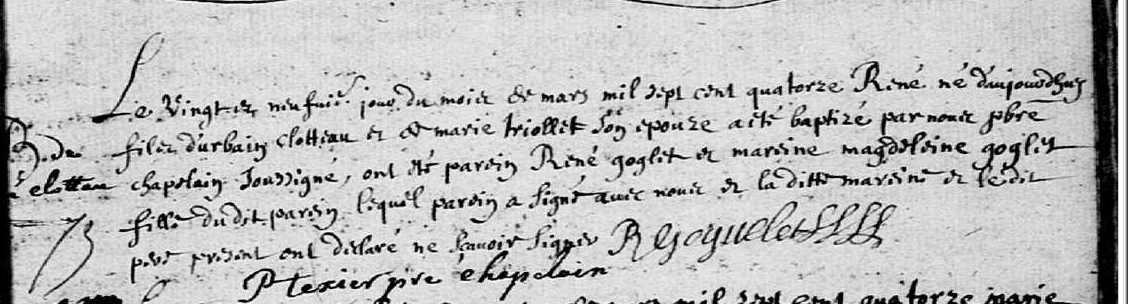 Le vingt et neufuie jour du mois de mars mil sept cent quatorze René né d'aujourdhuy
B. de filz d'urbain Clotteau et de marie triollet son epouze a été baptizé par nous pbre
clotteau chapelain soussigné, ont été parein René goglet et mareine magdeleine goglet
fille du dit parein lequel parein a signé avec nous et la ditte mareine et le dit
pere present ont declaré ne scavoir signer R Goguelet
P texier pre chapelain
mil sept cent quatorze marie